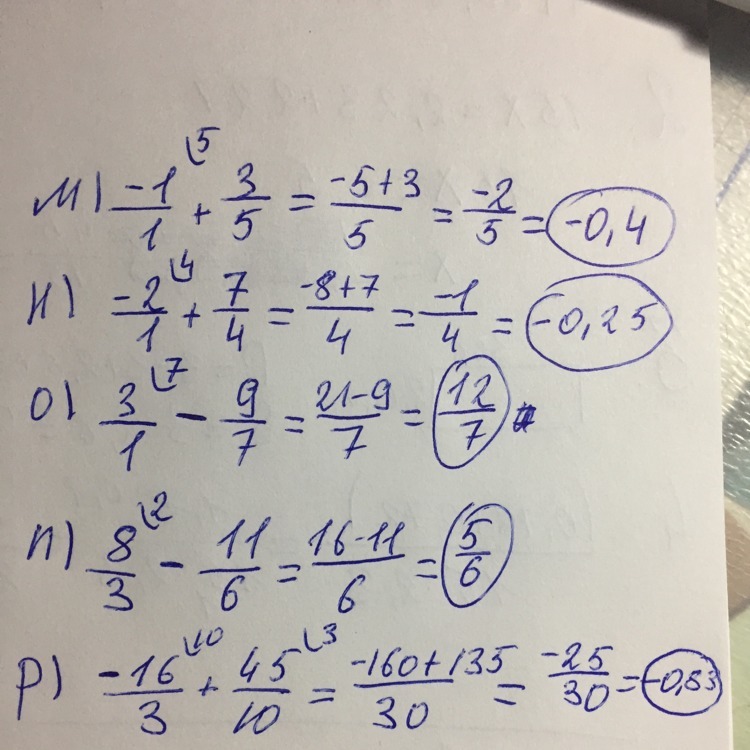 м) -1/1 \5 + 3/5 = -5+3/5 = -2/5 = -0,4
н) -2/1 \4 + 7/4 = -8+7/4 = -1/4 = -0,25
о) 3/1 \7 - 9/7 = 21-9/7 = 12/7
п) 8/3 \2 - 11/6 = 16-11/6 = 5/6
р) -16/3 \10 + 45/10 \3 = -160+135/30 = -25/30 = -0,83